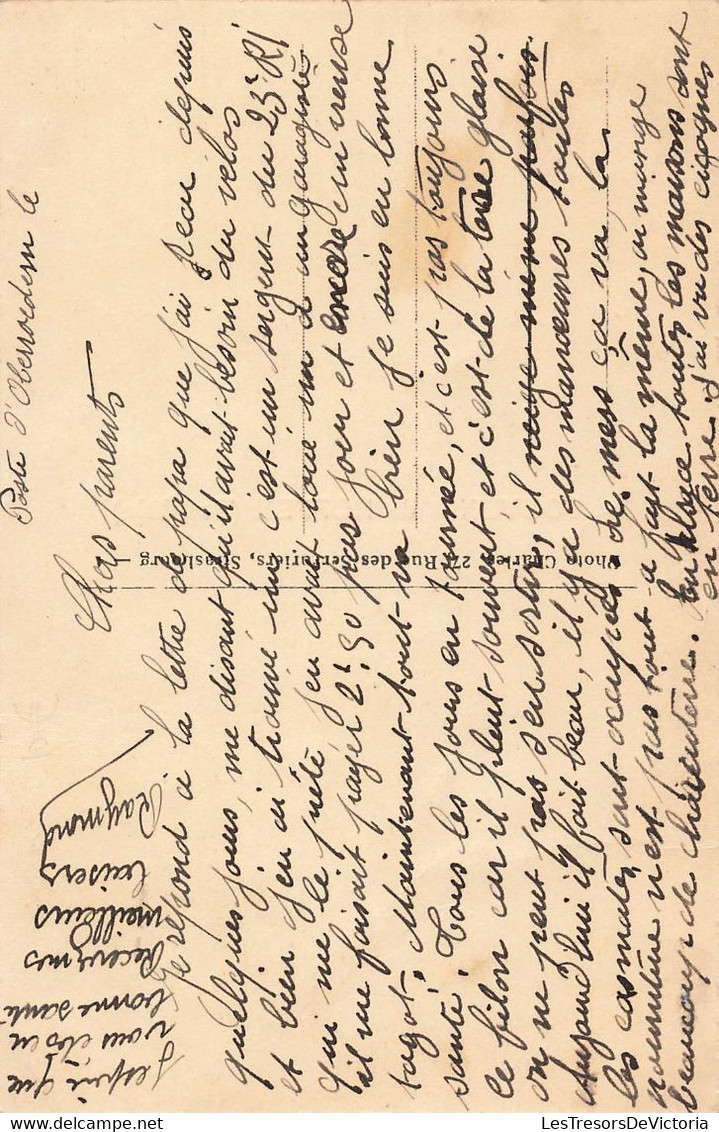 Poste d'Oberroedern le
Chers parents
Je répond à la lettre de papa que j'ai reçu depuis
quelques jours, me disant qu'il avait besoin du vélos
et bien j'en ai trouvé un c'est un sergent du 23e RI
qui me le prête, j'en avait loué un à un garagiste
il me faisait payer 2f,50 par jour et encore un vieuse
tagot. Maintenant tout va bien je suis en bonne
santé. Tous les jours en tournée, et c'est pas toujours
le filon car il pleut souvent et c'est de la terre glaise
on ne peut pas s'en sortir, il neige même parfois.
Aujourd'hui il fait beau, il y a des manœuvres toutes
les casmates sont occupées de mess ça va la
nourriture n'est pas tout a fayt la même, on mange
beaucoup de charcuterie. En Alsace toutes les maisons sont
en terre j'ai vu des cigognes
J'espère que
vous êtes en
bonne santé
Recevez mes
meilleurs
baisers
Raymond
Photo Charles, 27, Rue des Serruriers, Strasbourg
LesTresorsDeVictoria